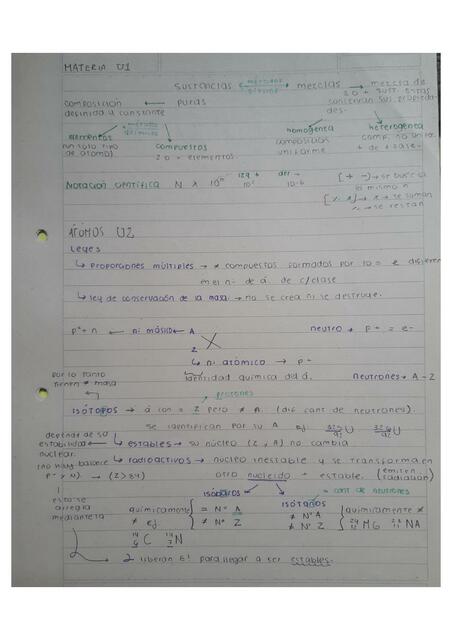 MATERIA U1
SUSTANCIAS ← métodos físicos → mezclas → mezcla de
composición ← puras 2 o + sust. estas
definida y constante conservan sus propieda-
des.
elementos métodos químicos compuestos homogénea heterogénea
(un solo tipo 2 o + elementos composición comp. no unifor.
de átomo) uniforme + de 1 fase.
Notación científica N x 10ⁿ izq + der -
10² 10⁻⁶
[+ -] → se busca
el mismo n
→ x → se suman
→ se restan
ÁTOMOS U2
Leyes
↳ proporciones múltiples → ≠ compuestos formados por los = e difieren
en el nº de á. de c/clase
↳ ley de conservación de la masa: → no se crea ni se destruye.
p⁺ + n ← nº másico ← A neutro → p⁺ = e-
Z
↳ nº atómico → p⁺
identidad química del á. neutrones → A - Z
por lo tanto
tienen ≠ masa
protones
ISÓTOPOS → á con = Z pero ≠ A. (dif cant de neutrones)
se identifican por su A ej 235 92 U 236 92 U
depende de su
estabilidad ↳ estables → su núcleo (Z, A) no cambia
nuclear.
(no hay balance ↳ radioactivos → núcleo inestable y se transforma en
p⁺ y N) → (Z>84) otro nucleido + estable. (emiten radiación)
esto se
arregla
mediante la
isóbaros ISÓTONOS → = cant de neutrones
químicamente ≠ ej { = Nº A ≠ Nº Z
≠ Nº A ≠ Nº Z } químicamente ≠
14 6 C 14 7 N 24 12 Mg 23 11 NA
2 liberan E! para llegar a ser estables.